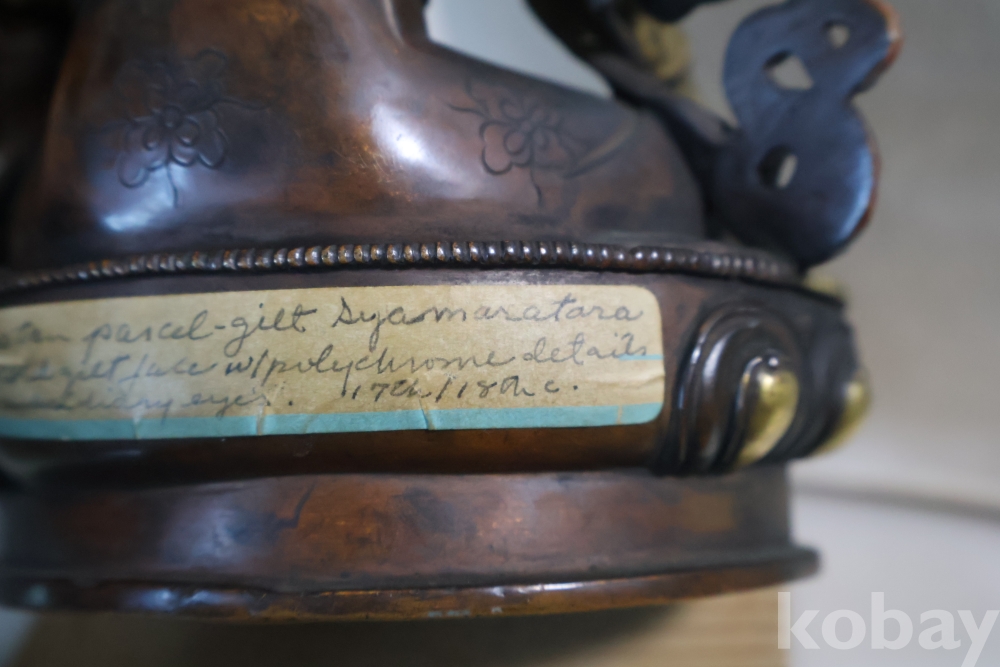 parcel-gilt Syamaratara
face w/polychrome details
eyes. 17th/18th c.
kobay